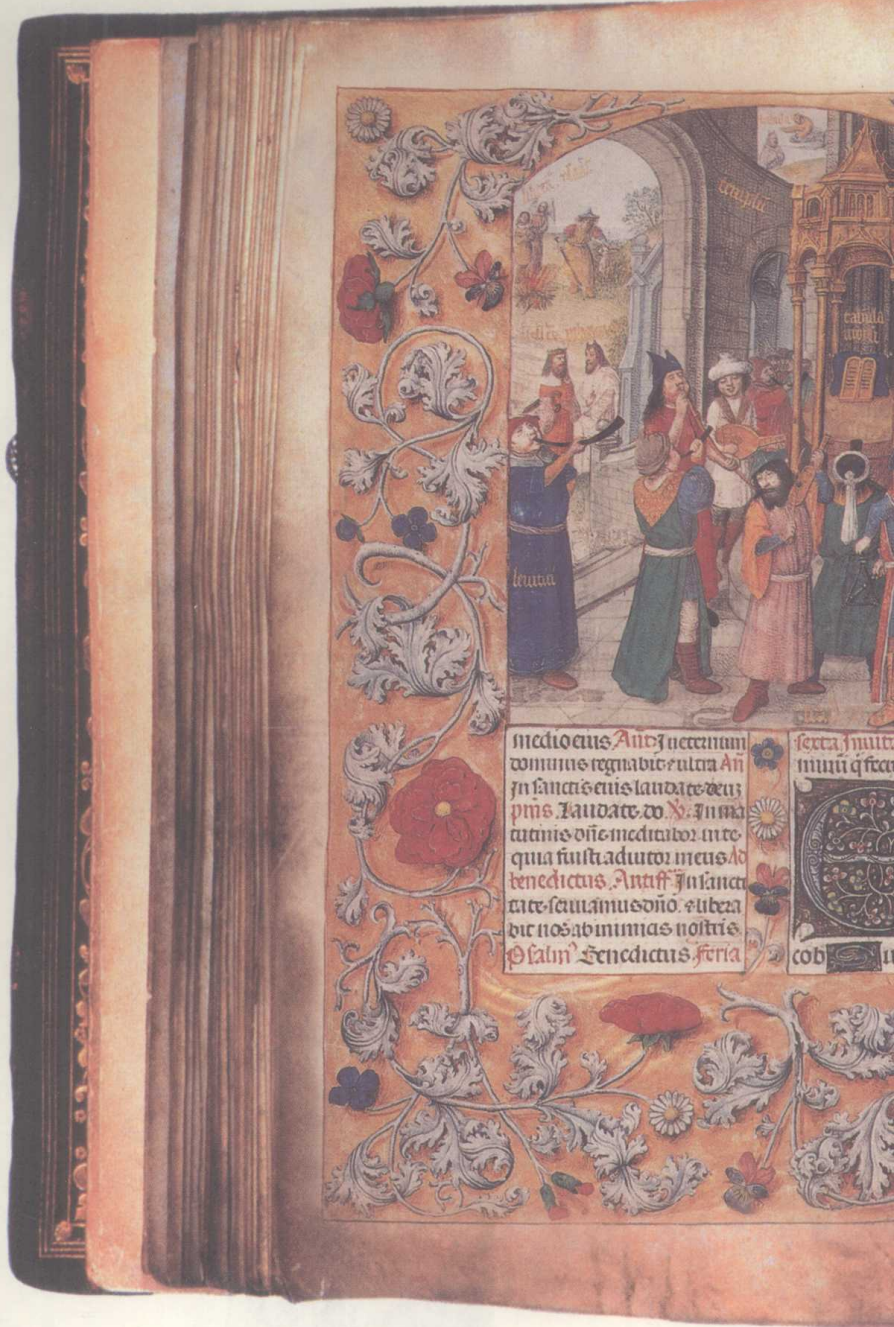 templū
tabula
leuitici
medio eius Añt Jn eternum
dominus regnabit & ultra Añ
Jn sanctis eius laudate deuz
pms. Laudate do. ℣. Jn ma
tutinis dñe meditabor in te
quia fuisti adiutor meus Ad
benedictus. Antiff Jn sancti
tate seruiamus dño. & libera
bit nos ab inimicis nostris
Psalm' Benedictus feria
sexta Jnuita
minū q fecit
E
cob